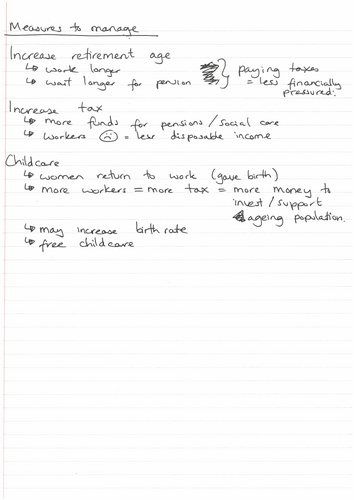 Measures to manage
Increase retirement age
↳ work longer
↳ wait longer for pension
} paying taxes
= less financially
pressured.
Increase tax
↳ more funds for pensions / social care
↳ workers ☹ = less disposable income
Childcare
↳ women return to work (gave birth)
↳ more workers = more tax = more money to
invest / support
ageing population.
↳ may increase birth rate
↳ free childcare